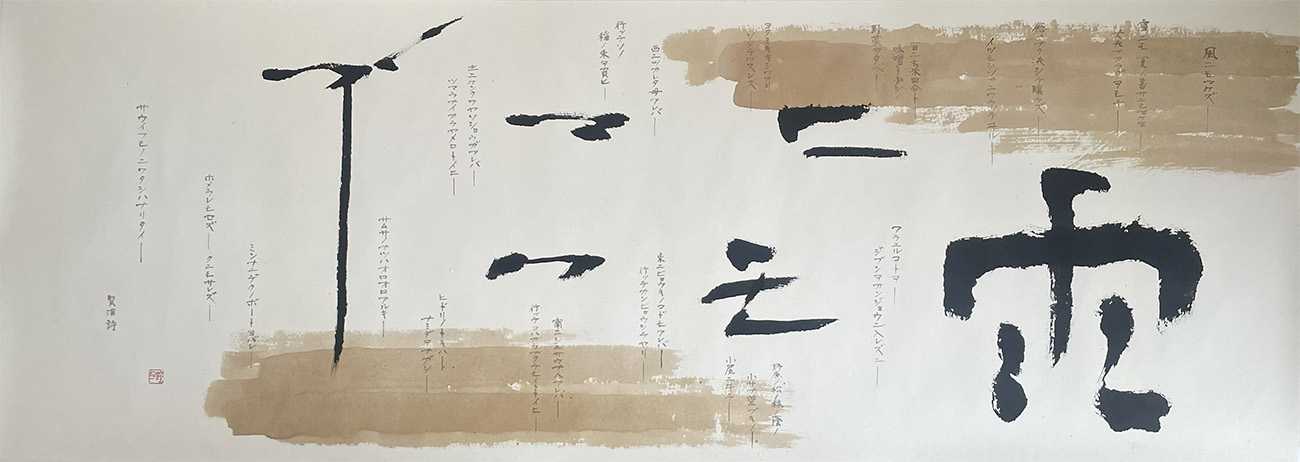 雨ニモ
風ニモマケズ
雪ニモ夏ノ暑サニモマケヌ
丈夫ナカラダヲモチ
決シテ瞋ラズ
イツモシヅカニワラッテヰル
一日ニ玄米四合ト
味噌ト少シノ
野菜ヲタベ
アラユルコトヲ
ジブンヲカンジョウニ入レズニ
ヨクミキキシワカリ
ソシテワスレズ
野原ノ松ノ林ノ蔭ノ
小サナ萱ブキノ
小屋ニヰテ
東ニビョウキノコドモアレバ
行ッテカンビョウシテヤリ
西ニツカレタ母アレバ
行ッテソノ
稲ノ束ヲ負ヒ
南ニシニサウナ人アレバ
北ニケンクヮヤソショウガアレバ
ツマラナイカラヤメロトイヒ
ヒドリノトキハ
ナミダヲナガシ
サムサノナツハオロオロアルキ
ミンナニデクノボートヨバレ
ホメラレモセズ クニモサレズ
サウイフモノニワタシハナリタイ
賢治詩